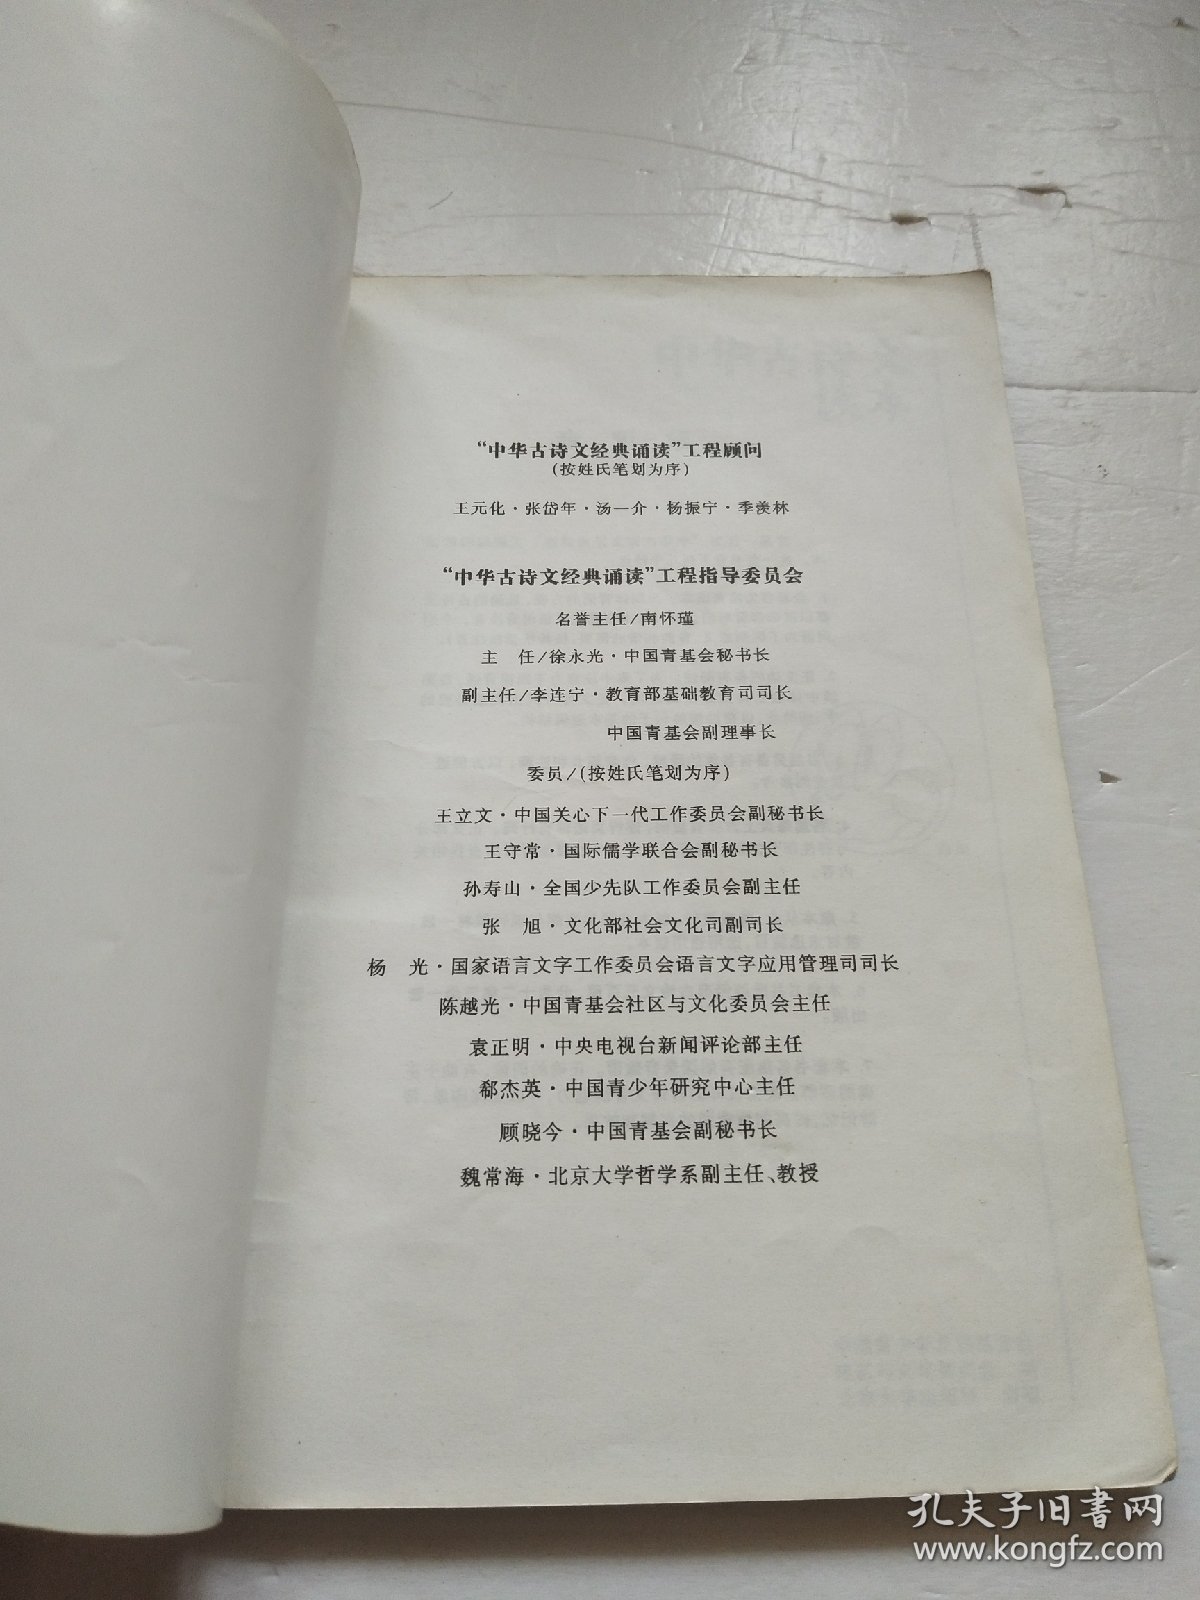 “中华古诗文经典诵读”工程顾问
(按姓氏笔划为序)
王元化·张岱年·汤一介·杨振宁·季羡林
“中华古诗文经典诵读”工程指导委员会
名誉主任/南怀瑾
主　任/徐永光·中国青基会秘书长
副主任/李连宁·教育部基础教育司司长
中国青基会副理事长
委员/(按姓氏笔划为序)
王立文·中国关心下一代工作委员会副秘书长
王守常·国际儒学联合会副秘书长
孙寿山·全国少先队工作委员会副主任
张　旭·文化部社会文化司副司长
杨　光·国家语言文字工作委员会语言文字应用管理司司长
陈越光·中国青基会社区与文化委员会主任
袁正明·中央电视台新闻评论部主任
郗杰英·中国青少年研究中心主任
顾晓今·中国青基会副秘书长
魏常海·北京大学哲学系副主任、教授
孔夫子旧书网
www.kongfz.com